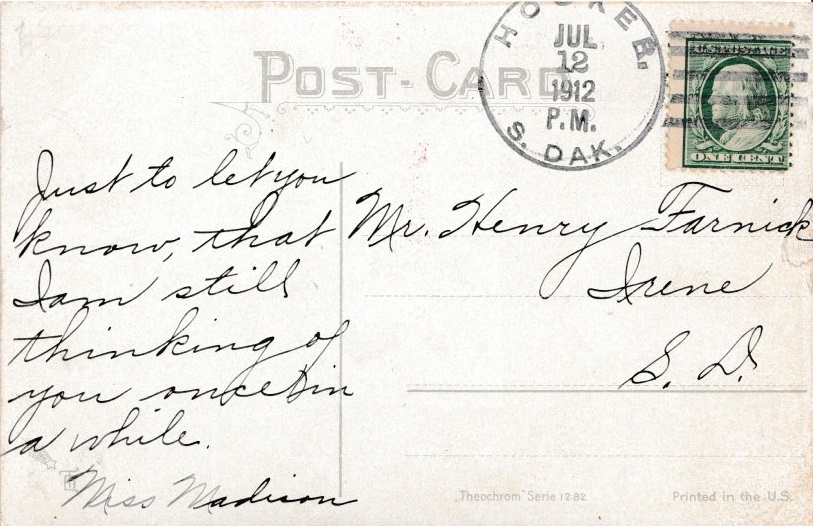 POST-CARD
HOOKER,
JUL
12
1912
P.M.
S. DAK.
U.S. POSTAGE
ONE CENT
Just to let you
know, that
I am still
thinking of
you once in
a while.
Miss Madison
Mr. Henry Farnick
Irene
S. D.
"Theochrom" Serie 1282
Printed in the U.S.